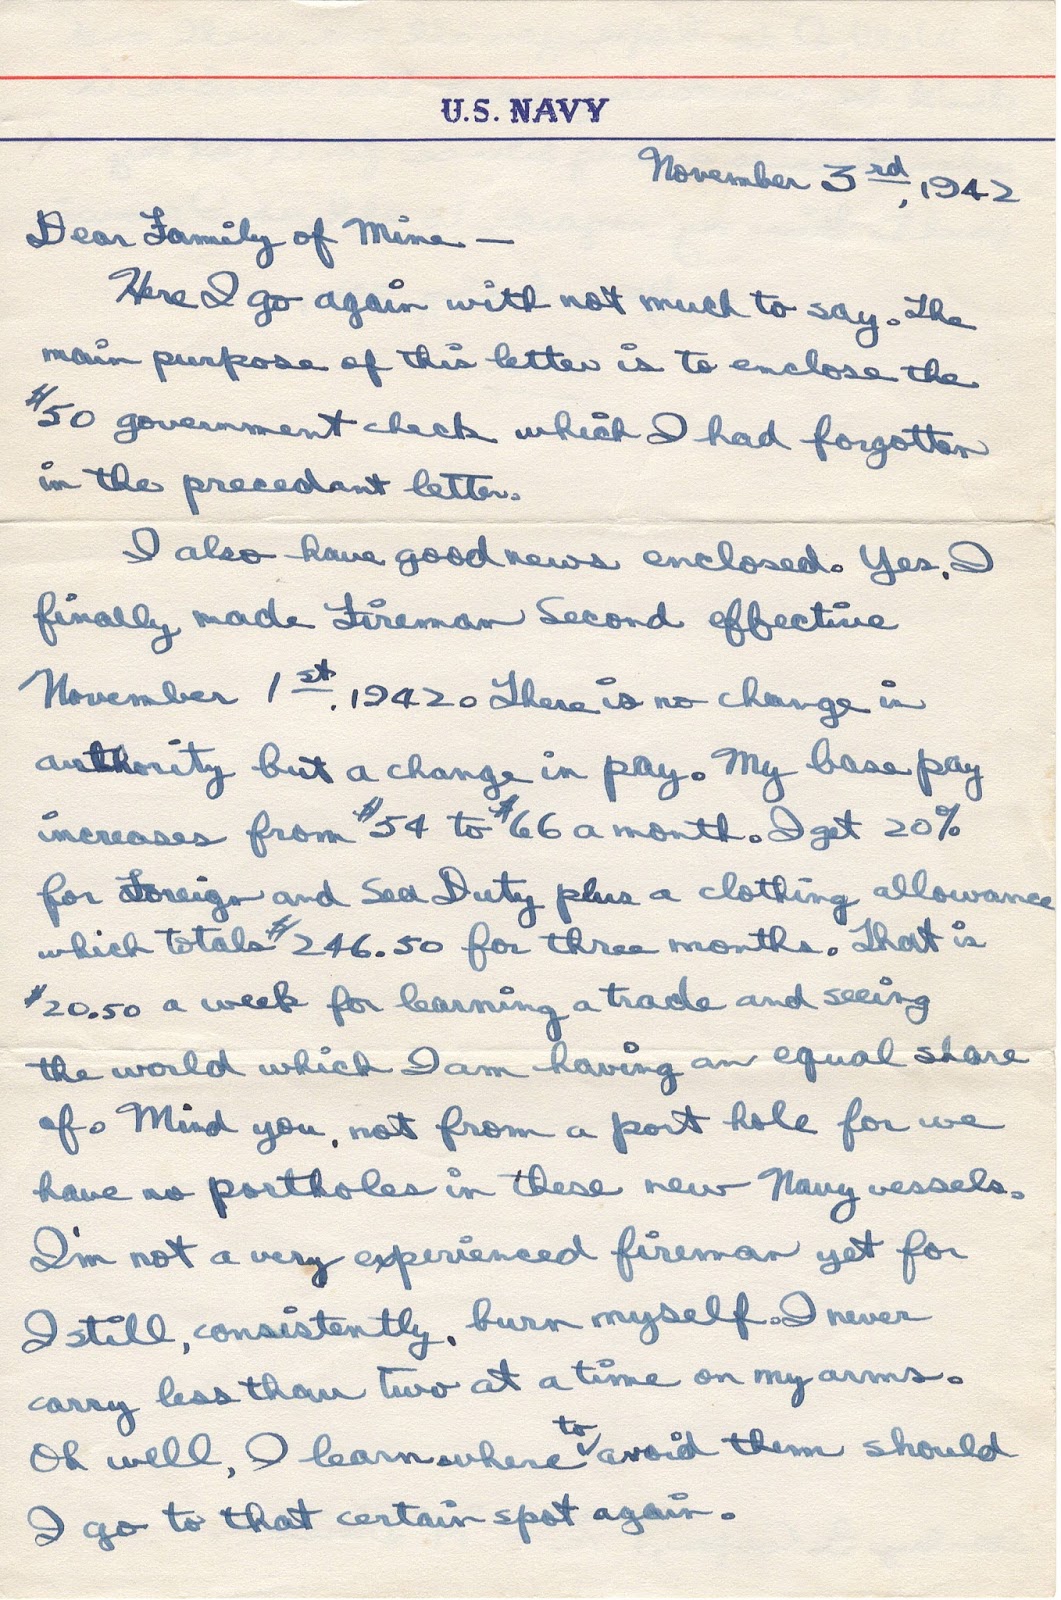 U.S. NAVY
November 3rd, 1942
Dear Family of Mine —
Here I go again with not much to say. The
main purpose of this letter is to enclose the
$50 government check which I had forgotten
in the precedant letter.
I also have good news enclosed. Yes, I
finally made Fireman Second effective
November 1st, 1942. There is no change in
authority but a change in pay. My base pay
increases from $54 to $66 a month. I get 20%
for Foreign and Sea Duty plus a clothing allowance
which totals $246.50 for three months. That is
$20.50 a week for learning a trade and seeing
the world which I am having an equal share
of. Mind you, not from a port hole for we
have no portholes in these new Navy vessels.
I'm not a very experienced fireman yet for
I still, consistently, burn myself. I never
carry less than two at a time on my arms.
Oh well, I learn where to avoid them should
I go to that certain spot again.